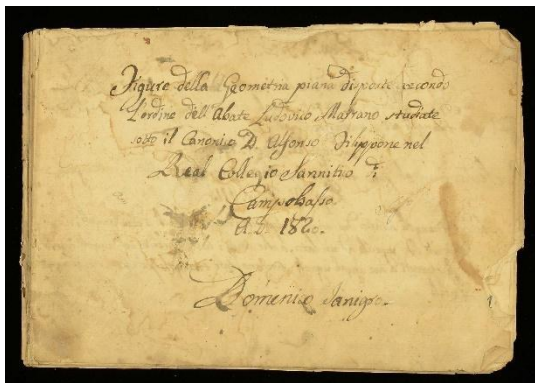 Figure della Geometria piana disposte secondo
l'ordine dell'Abate Ludovico Marano studiate
sotto il Canonico D. Alfonso Filippone nel
Real Collegio Sannitico di
Campobasso
A. D. 1820.
Domenico
1